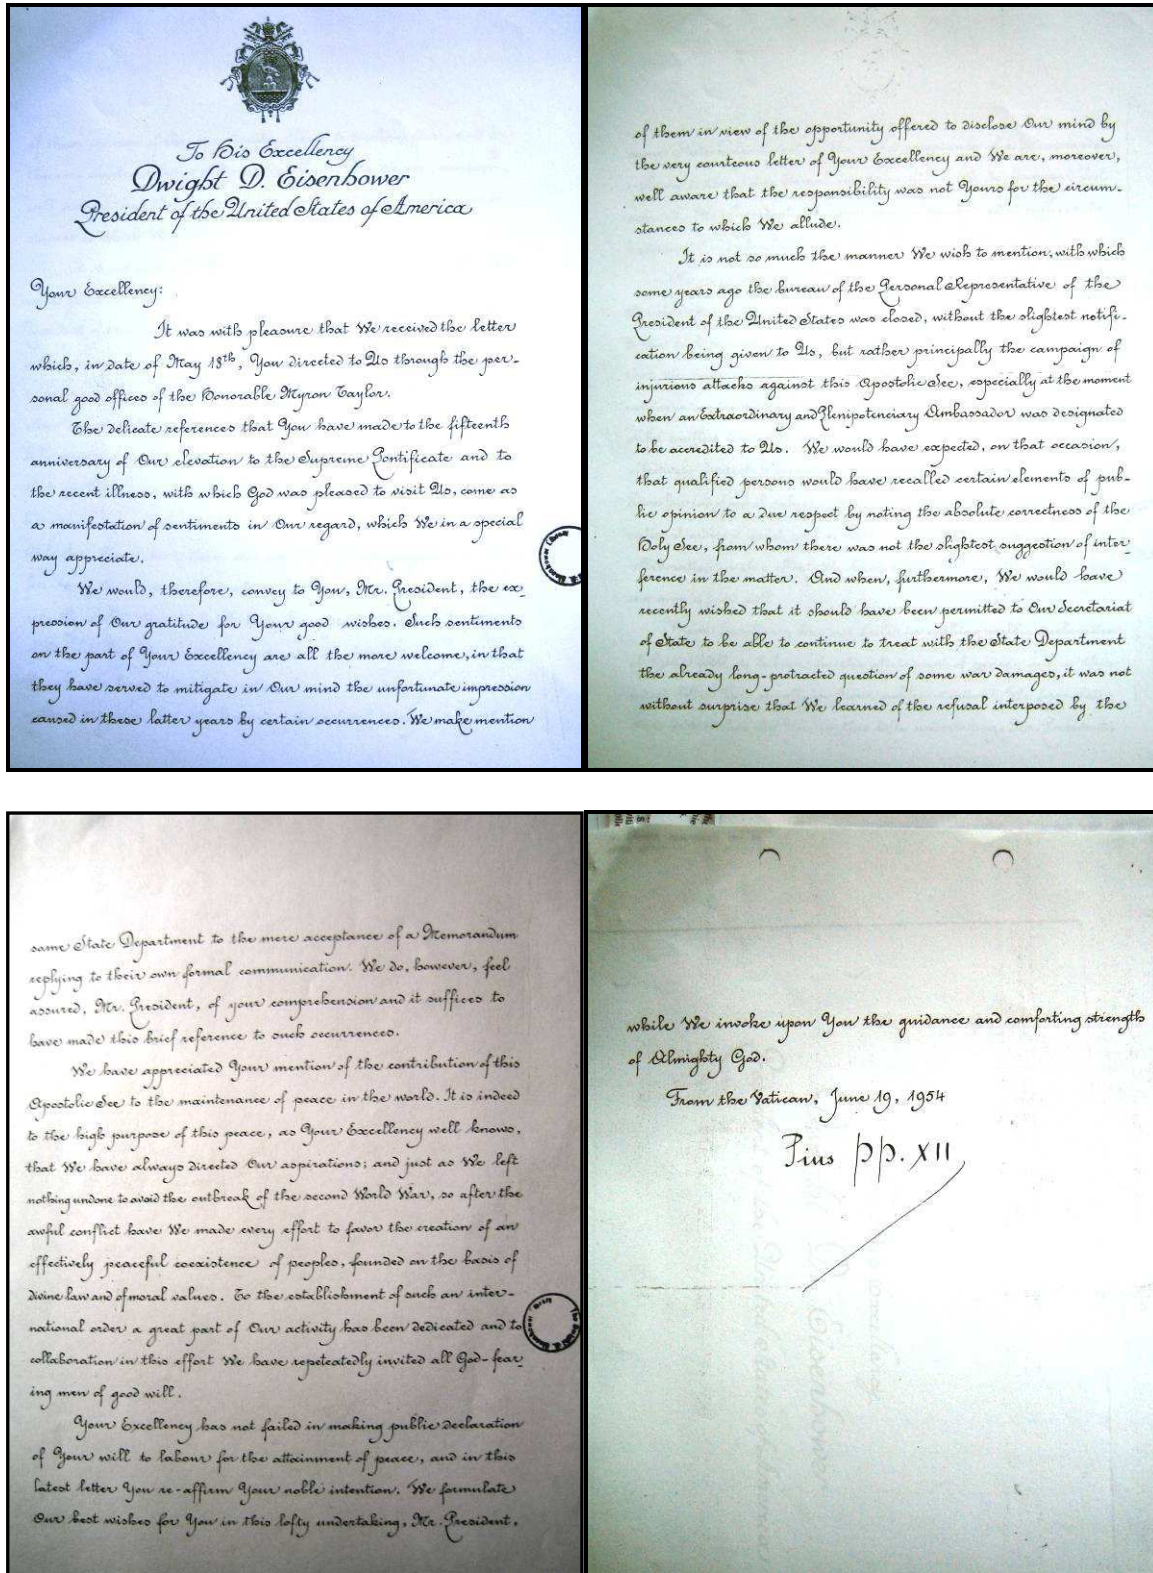 To His Excellency
Dwight D. Eisenhower
President of the United States of America
Your Excellency:
It was with pleasure that We received the letter
which, in date of May 18th, You directed to Us through the per-
sonal good offices of the Honorable Myron Taylor.
The delicate references that You have made to the fifteenth
anniversary of Our elevation to the Supreme Pontificate and to
the recent illness, with which God was pleased to visit Us, come as
a manifestation of sentiments in Our regard, which We in a special
way appreciate.
We would, therefore, convey to You, Mr. President, the ex-
pression of Our gratitude for Your good wishes. Such sentiments
on the part of Your Excellency are all the more welcome, in that
they have served to mitigate in Our mind the unfortunate impression
caused in these latter years by certain occurrences. We make mention
of them in view of the opportunity offered to disclose Our mind by
the very courteous letter of Your Excellency and We are, moreover,
well aware that the responsibility was not Yours for the circum-
stances to which We allude.
It is not so much the manner We wish to mention, with which
some years ago the bureau of the Personal Representative of the
President of the United States was closed, without the slightest notifi-
cation being given to Us, but rather principally the campaign of
injurious attacks against this Apostolic See, especially at the moment
when an Extraordinary and Plenipotenciary Ambassador was designated
to be accredited to Us. We would have expected, on that occasion,
that qualified persons would have recalled certain elements of pub-
lic opinion to a due respect by noting the absolute correctness of the
Holy See, from whom there was not the slightest suggestion of inter-
ference in the matter. And when, furthermore, We would have
recently wished that it should have been permitted to Our Secretariat
of State to be able to continue to treat with the State Department
the already long-protracted question of some war damages, it was not
without surprise that We learned of the refusal interposed by the
same State Department to the mere acceptance of a Memorandum
replying to their own formal communication. We do, however, feel
assured, Mr. President, of your comprehension and it suffices to
have made this brief reference to such occurrences.
We have appreciated Your mention of the contribution of this
Apostolic See to the maintenance of peace in the world. It is indeed
to the high purpose of this peace, as Your Excellency well knows,
that We have always directed Our aspirations; and just as We left
nothing undone to avoid the outbreak of the second World War, so after the
awful conflict have We made every effort to favor the creation of an
effectively peaceful coexistence of peoples, founded on the basis of
divine law and of moral values. To the establishment of such an inter-
national order a great part of Our activity has been dedicated and to
collaboration in this effort We have repeteatedly invited all God-fear-
ing men of good will.
Your Excellency has not failed in making public declaration
of Your will to labour for the attainment of peace, and in this
latest letter You re-affirm Your noble intention. We formulate
Our best wishes for You in this lofty undertaking, Mr. President,
while We invoke upon You the guidance and comforting strength
of Almighty God.
From the Vatican, June 19, 1954
Pius pp. XII